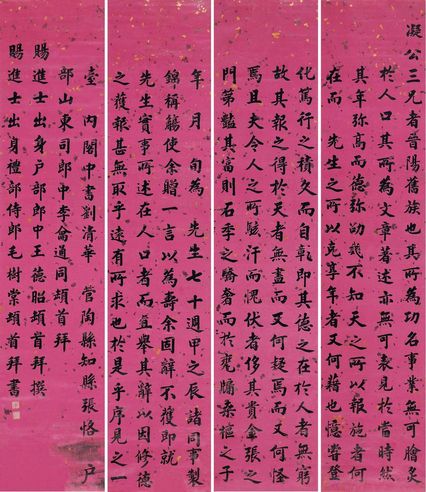 凝公三兄者晉陽舊族也其所為功名事業無可膾炙
於人口其所為文章著述亦無可表見於當時然
其年弥高而德弥劭不知天之所以報施者何
在而 先生之所以克享年者又何藉也憶嘗登
化篤行之積久而自彰即其德之在於人者無窮
故其報之得於天者無盡而又何疑焉而又何怪
焉且夫今人之所駭汗而愧伏者侈其貴金張之
門第豔其富則石季之驕奢而於甕牖桑樞之子
年 月 旬為 先生七十週甲之辰諸同事製
錦稱觴使余贈一言以為壽余固辭不獲即就
先生實事所述在人口者而直舉其辭以因修德
之獲報甚無取乎遠有所求也於是乎序見之一
臺 內閣中書劉清華 管陶縣知縣張恪 戶
部山東司郎中李翕通同頓首拜
賜進士出身戶部郎中王德昭頓首拜撰
賜進士出身禮部侍郎毛樹棠頓首拜書